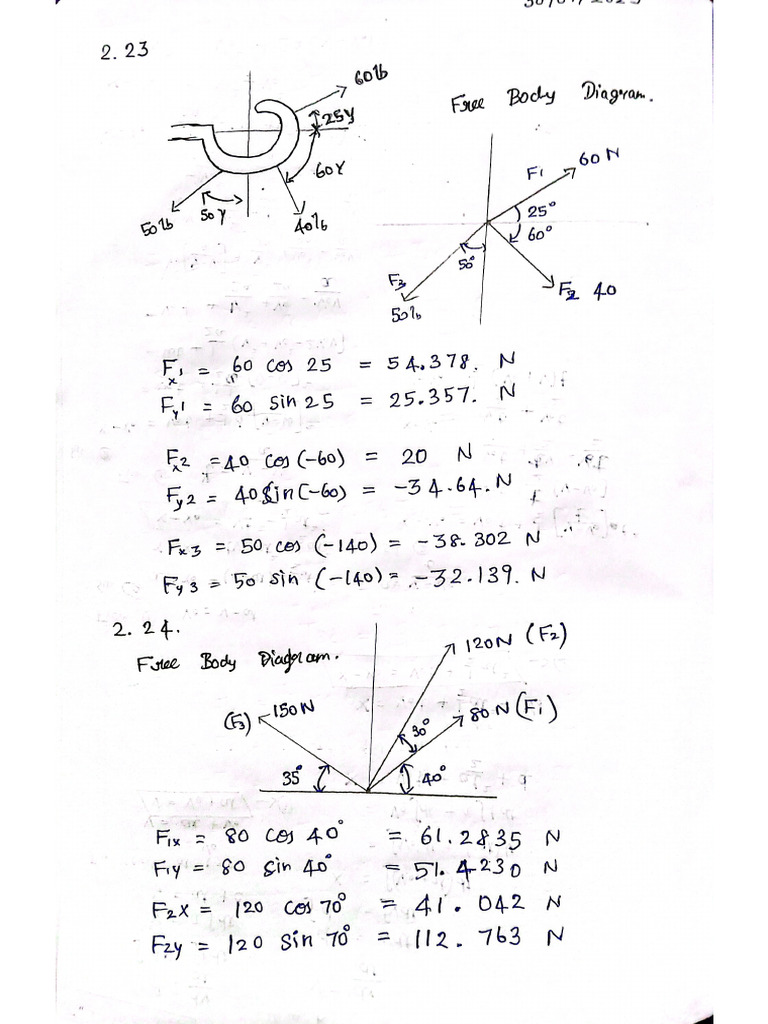 2.23
60lb
Free Body Diagram.
25γ
60γ
50lb
50γ
40lb
F1
60 N
25°
60°
50°
F3
50lb
F2 40
Fx1 = 60 cos 25 = 54.378. N
Fy1 = 60 sin 25 = 25.357. N
Fx2 = 40 cos (-60) = 20 N
Fy2 = 40 sin (-60) = -34.64. N
Fx3 = 50 cos (-140) = -38.302 N
Fy3 = 50 sin (-140) = -32.139. N
2.24.
Free Body Diagram.
120N (F2)
(F3) 150N
80N (F1)
30°
35°
40°
F1x = 80 cos 40° = 61.2835 N
F1y = 80 sin 40° = 51.4230 N
F2x = 120 cos 70° = 41.042 N
F2y = 120 sin 70° = 112.763 N